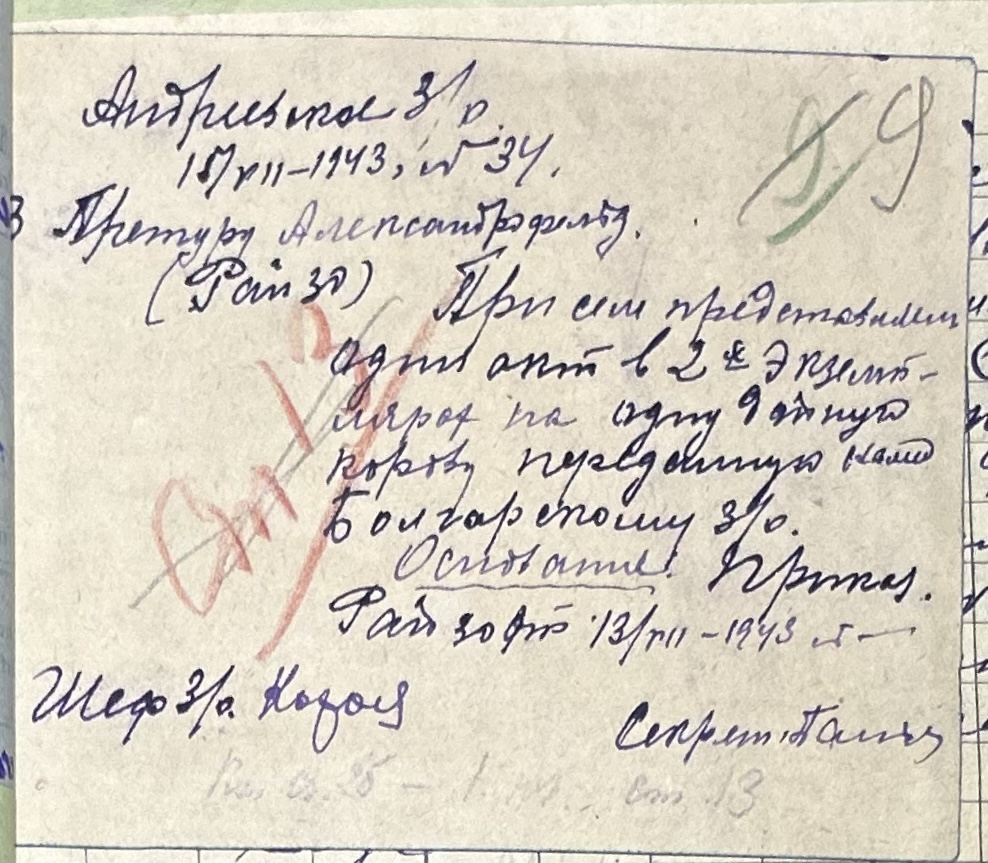 Андреевка З/о.
15/XII-1943, № 34.
Претуру Александрфельд.
(Рай ЗО)
При сем представляем
один акт в 2х экземп-
лярах на одну дойную
корову переданную нами
Болгарскому З/о.
Основание: Приказ.
Рай ЗО от 13/XII-1943 № —
Шеф З/о.
Секрет.
9 9